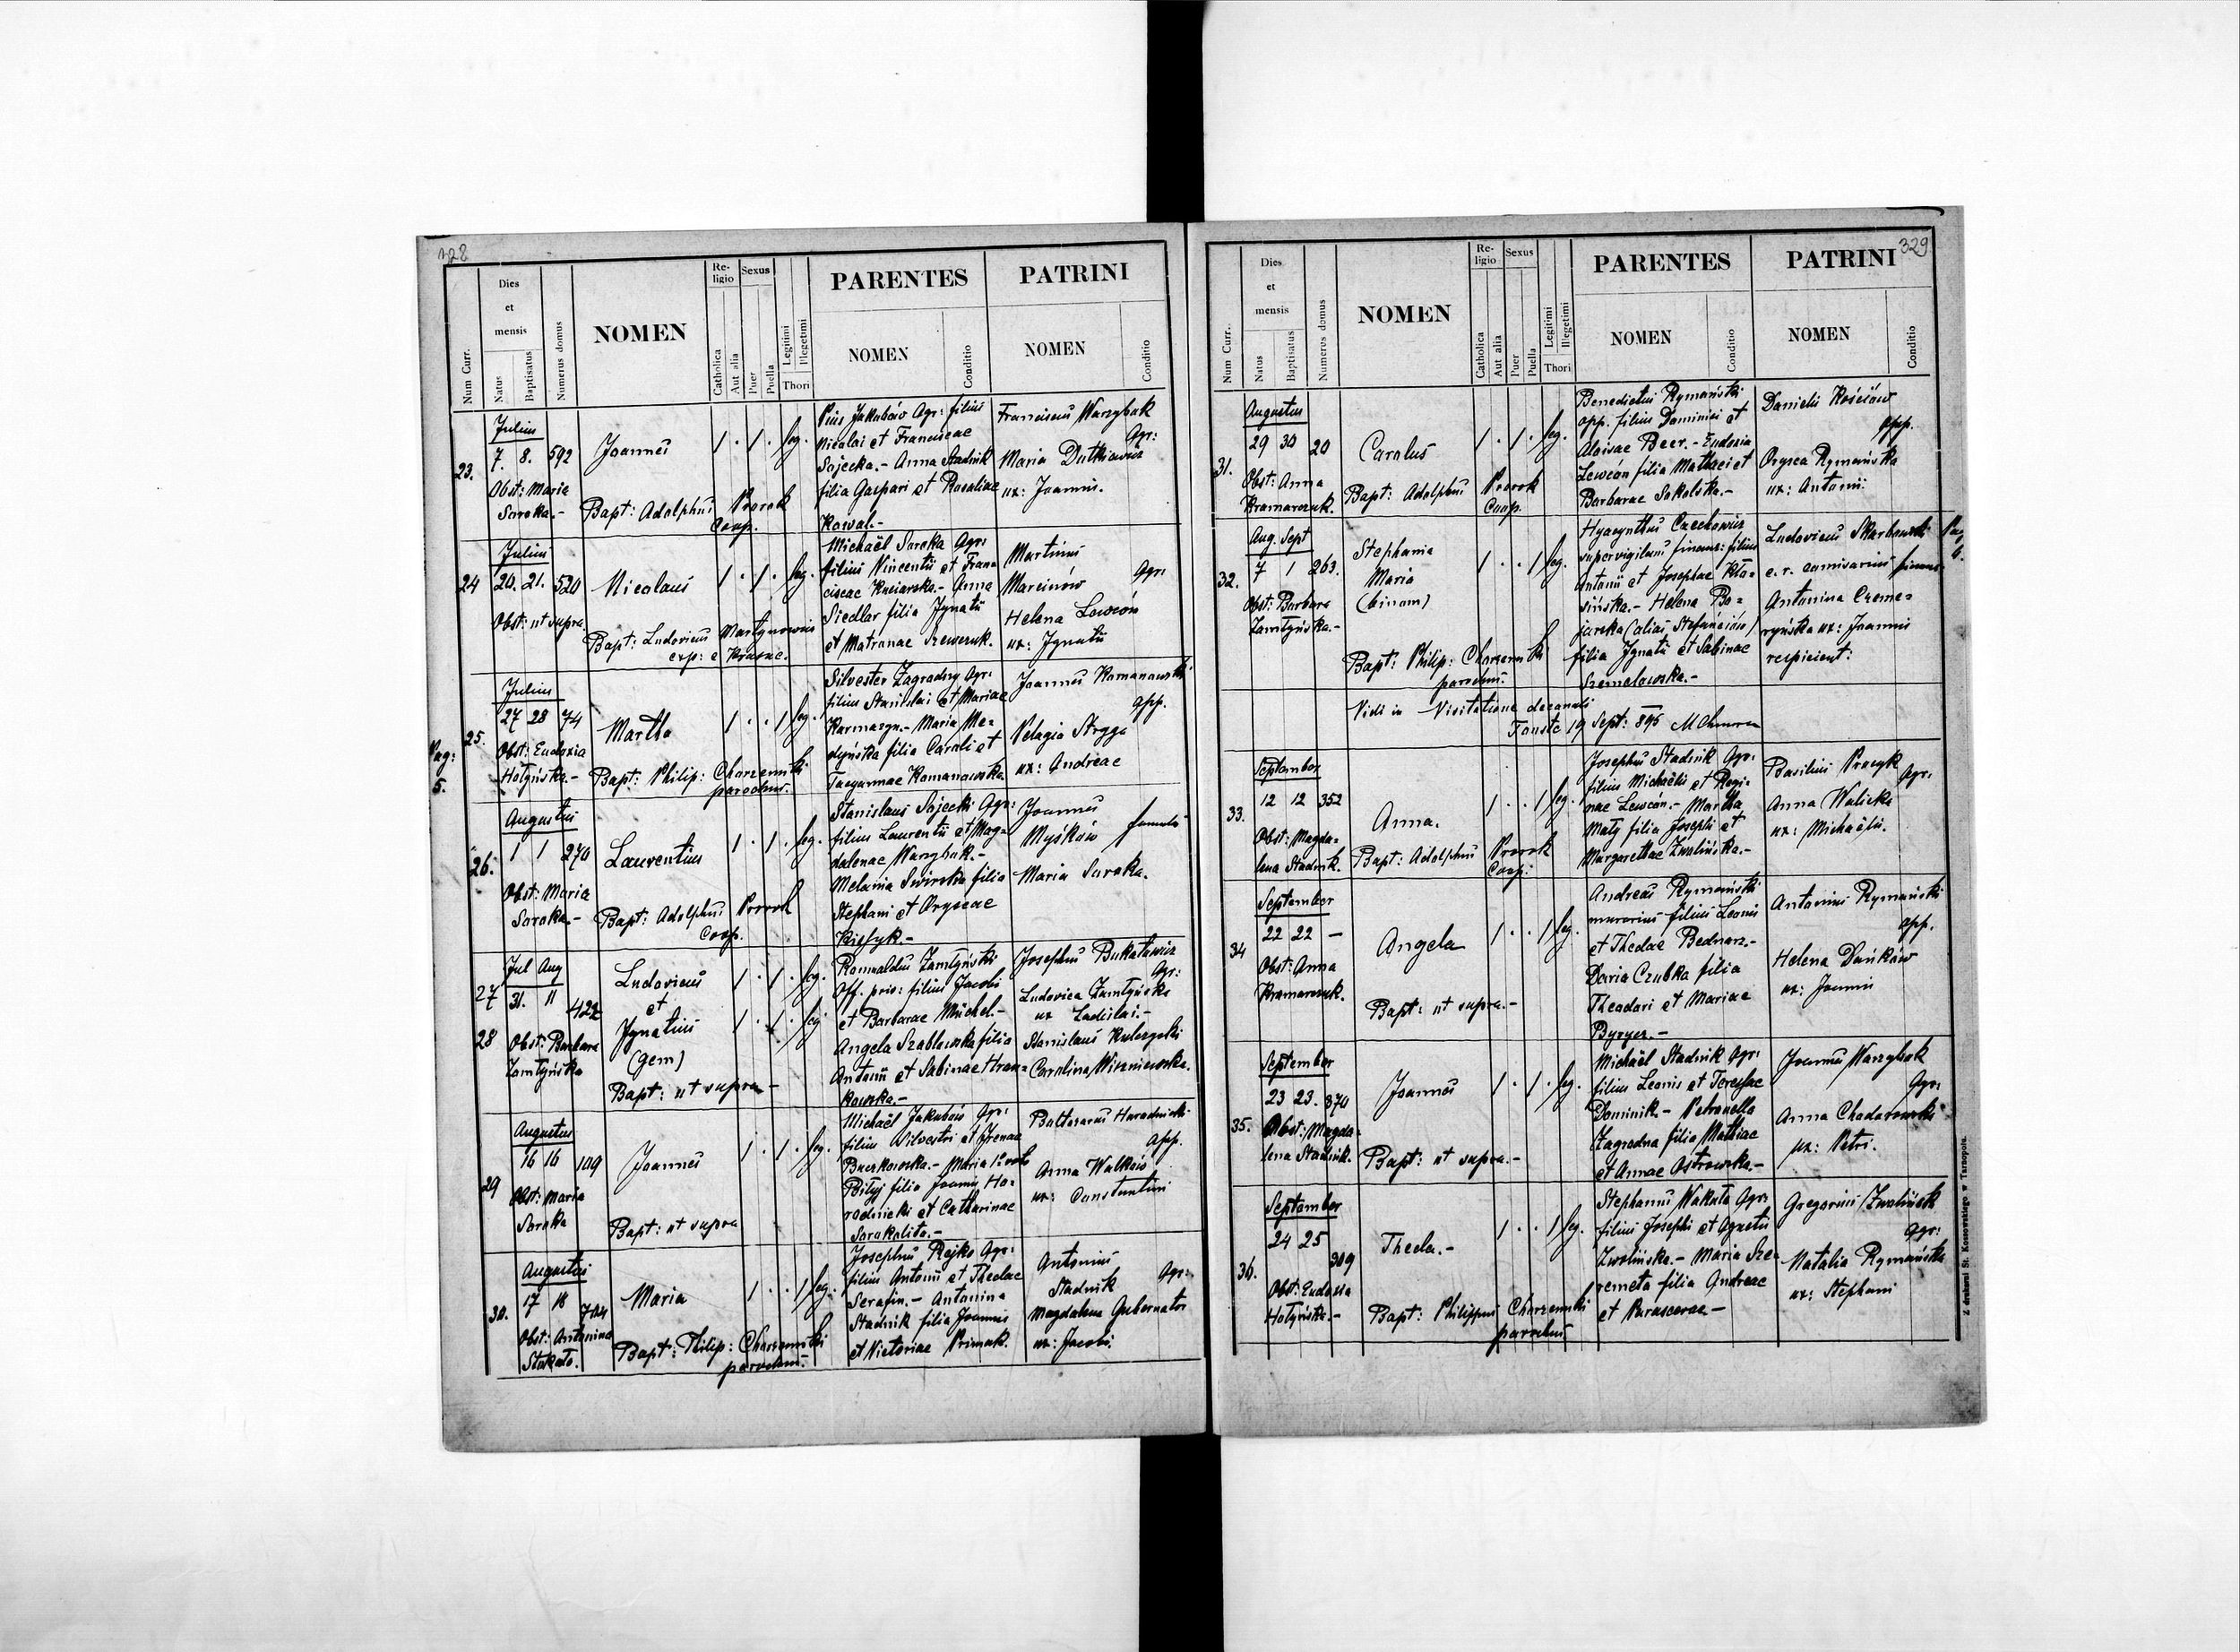 328
Num Curr.
Dies et mensis
Natus
Baptisatus
Numerus domus
NOMEN
Religio
Catholica
Aut alia
Sexus
Puer
Puella
Legitimi
Illegetimi
Thori
PARENTES
NOMEN
Conditio
PATRINI
NOMEN
Conditio
23.
Julius
7. 8. 592
Obst: Maria
Soroka.-
Joannes
1 . 1 . leg.
Bapt: Adolphus Prorok
Coop.
Pius Jakubów Agr: filius
Nicolai et Franciscae
Sojecka.- Anna Stadnik
filia Gaspari et Rosaliae
Kowal.-
Franciscus Warzybok
Agr:
Maria Dutkiewicz
ux: Joannis.
24
Julius
20. 21. 520
Obst: ut supra
Nicolaus
1 . 1 . leg.
Bapt: Ludovicus Martynowicz
exp: e Krasne.
Michaël Soroka Agr:
filius Vincentii et Fran=
ciscae - Anna
Siedlar filia Ignatii
et Matronae Szewczuk.-
Martinus
Marcinów Agr:
Helena Lewcón
ux: Ignatii
Pag:
5.
25.
Julius
27 28 74
Obst: Eudoxia
Hołyńska.-
Martha
1 . . 1 leg.
Bapt: Philip: Charzewski
parochus.
Silvester Zagrodny Agr:
filius Stanislai et Mariae
Karmazyn.- Maria Me=
dyńska filia Caroli et
Romanowska
Joannes Romanowski
opp.
Pelagia Stryga
ux: Andreae
26.
Augustus
1 1 270
Obst: Maria
Soroka.-
Laurentius
1 . 1 . leg.
Bapt: Adolphus Prorok
Coop.
Stanislaus Sojecki Agr:
filius Laurentii et Mag=
dalenae Warzybok.-
Melania Swirska filia
Stephani et Oryscae
Joannes
Myśków famulus
Maria Soroka.
27
28
Jul Aug
31. 11 422
Obst: Barbara
Zamłyńska
Ludovicus
et
Ignatius
(gem)
1 . 1 . leg.
1 . 1 . leg
Bapt: ut supra -
Romualdus Zamłyński
Off. priv: filius Jacobi
et Barbarae Michel.-
Angela Szablowska filia
Antonii et Sabinae Hran=
kowska.-
Josephus Bukatowicz
Agr:
Ludovica Zamłyńska
ux Ladislai.-
Stanislaus Kulczycki
Carolina Wiszniewska.
29
Augustus
16 16 109
Obst: Maria
Soroka
Joannes
1 . 1 . leg.
Bapt: ut supra
Michaël Jakubów Agr:
filius Silvestri et Irenae
Buczkowska.- Maria 1º voto
Biłyj filia Joannis Ho=
rodnicki et Catharinae
Sorokolita.-
Baltasarus Horodnicki
opp.
Anna Walków
ux: Constantini
30.
Augustus
17 18 704
Obst: Antonina
Maria
1 . . 1 leg.
Bapt: Philip: Charzewski
parochus.
Josephus Rejko Agr:
filius Antonii et Theclae
Serafin.- Antonina
Stadnik filia Joannis
et Victoriae Primak.
Antonius
Stadnik Agr:
Magdalena Gubernator
ux: Jacobi.
329
Num Curr.
Dies et mensis
Natus
Baptisatus
Numerus domus
NOMEN
Religio
Catholica
Aut alia
Sexus
Puer
Puella
Legitimi
Illegetimi
Thori
PARENTES
NOMEN
Conditio
PATRINI
NOMEN
Conditio
31.
Augustus
29 30 20
Obst: Anna
Kramarczuk.
Carolus
1 . 1 . leg.
Bapt: Adolphus Prorok
Coop.
Benedictus Rymański
opp. filius Dominici et
Aloisae Beer.- Eudoxia
Lewcón filia Mathaei et
Barbarae Sokolska.-
Daniel Kościów
opp.
Orysca Rymańska
ux: Antonii
32.
Aug. Sept
7 1 263.
Obst: Barbara
Zamłyńska.-
Stephania
Maria
(binom)
1 . . 1 leg.
Bapt: Philip: Charzewski
parochus.
Hyacynthus Czechowicz
supervigilans financ: filius
Antonii et Josephae Kło=
sińska.- Helena Bo=
jarska (alias Stefanciów)
filia Ignatii et Sabinae
Szemelowska.-
Ludovicus Skarbowski
c. r. comisarius financ.
Antonina Czeme=
ryńska ux: Joannis
respicient:
Pag
6.
Vidi in Visitatione decanali
19 Sept: 895
33.
September
12 12 352
Obst: Magda=
lena Stadnik.
Anna.
1 . . 1 leg.
Bapt: Adolphus Prorok
Coop:
Josephus Stadnik Agr:
filius Michaëlis et Regi=
nae Lewcón.- Martha
Mały filia Josephi et
Margarethae Zwolińska.-
Basilius Procyk
Agr:
Anna Walicka
ux: Michaëlis.
34
September
22 22 —
Obst: Anna
Kramarczuk.
Angela
1 . . 1 leg.
Bapt: ut supra.-
Andreas Rymański
murarius filius Leonis
et Theclae Bednarz.-
Daria Czubka filia
Theodori et Mariae
Antonius Rymański
opp.
Helena Dańków
ux: Joannis
35.
September
23 23. 870
Obst: Magda=
lena Stadnik.
Joannes
1 . 1 . leg.
Bapt: ut supra.-
Michaël Stadnik Agr:
filius Leonis et Teresae
Dominik.- Petronella
Zagrodna filia Mathiae
et Annae Ostrowska.-
Joannes Warzybok
Agr:
Anna Chodorowska
ux: Petri.
36.
September
24 25 309
Obst: Eudoxia
Hołyńska.-
Thecla.-
1 . . 1 leg.
Bapt: Philippus Charzewski
parochus
Stephanus Wakuła Agr:
filius Josephi et Agnetis
Zwolińska.- Maria Sze=
remeta filia Andreae
et Parascevae —
Gregorius Zwoliński
Agr:
Natalia Rymańska
ux: Stephani
Z drukarni St. Kossowskiego w Tarnopolu.